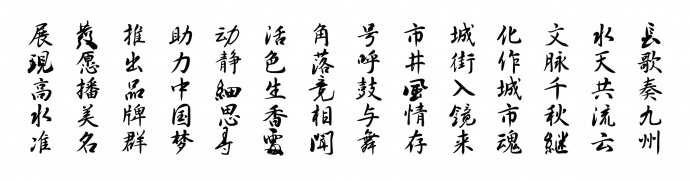 长歌奏九州
水天共流云
文脉千秋继
化作城市魂
城街入镜来
市井风情存
号呼鼓与舞
角落竞相闻
活色生香
动静细思寻
助力中国梦
推出品牌群
发愿播美名
展现高水准